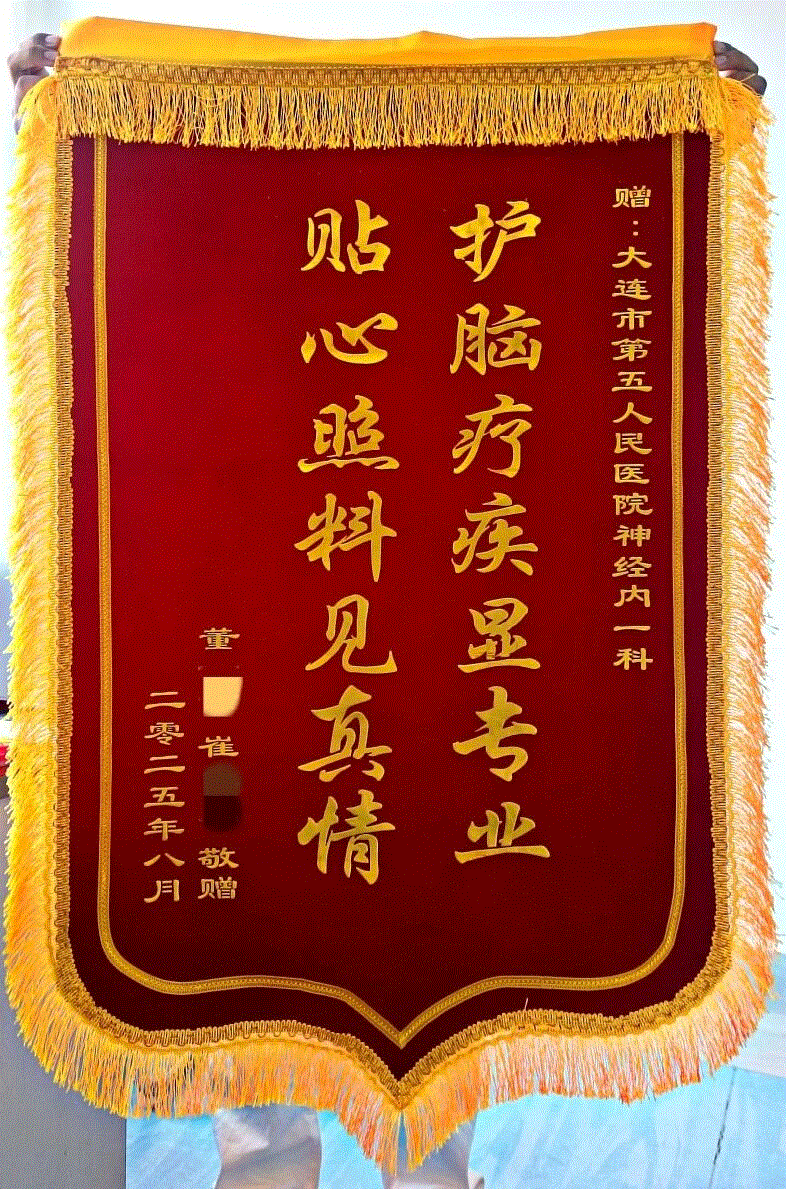 赠：大连市第五人民医院神经内一科
护脑疗疾显专业
贴心照料见真情
董 崔 敬赠
二零二五年八月